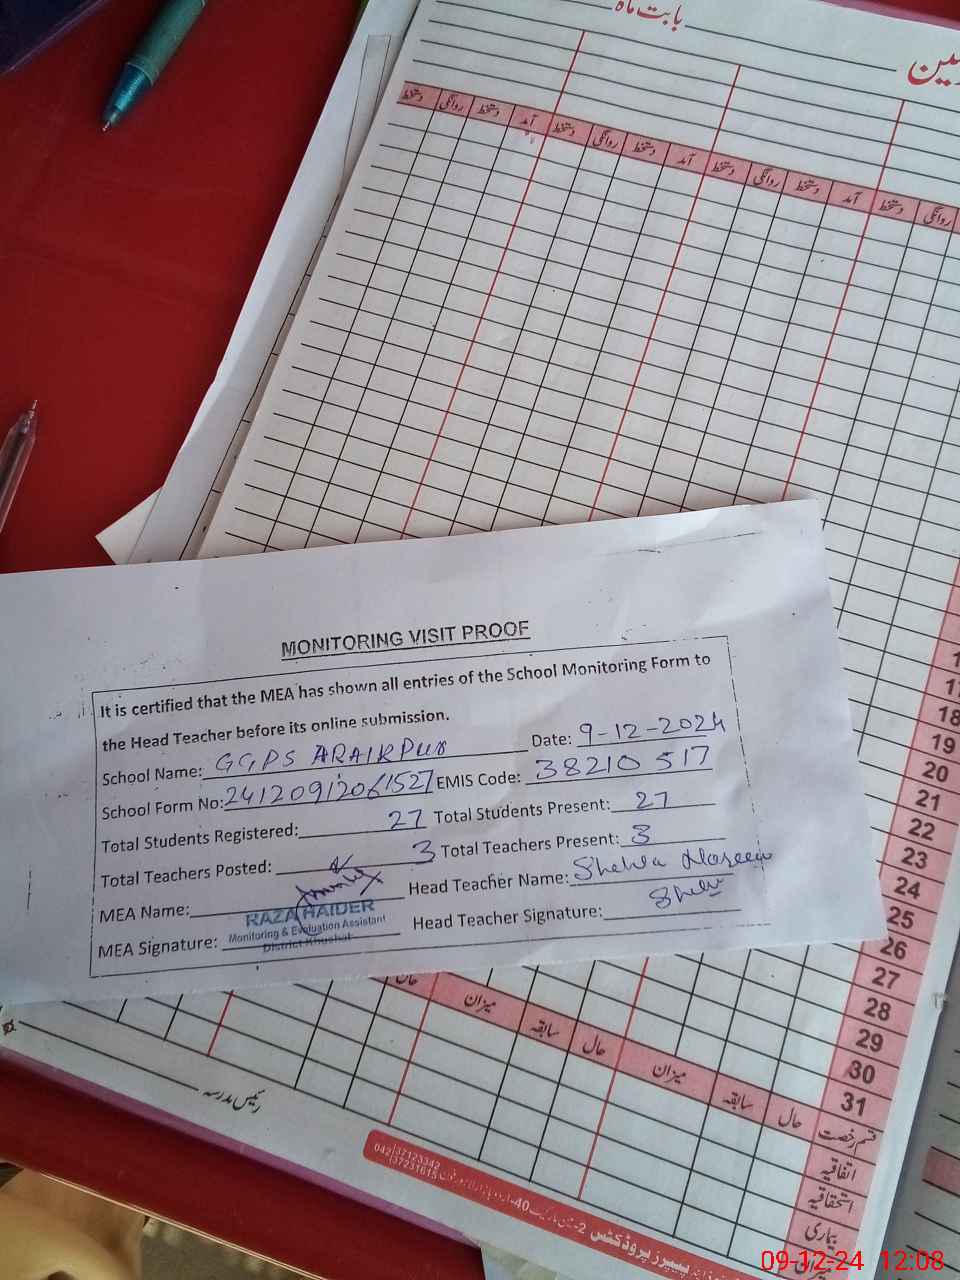 بابت ماہ
دستخط روانگی دستخط آمد دستخط روانگی دستخط آمد دستخط روانگی دستخط آمد دستخط روانگی
MONITORING VISIT PROOF
It is certified that the MEA has shown all entries of the School Monitoring Form to
the Head Teacher before its online submission.
School Name: GGPS ARAIKPUR Date: 9-12-2024
School Form No: 24120912061527 EMIS Code: 38210517
Total Students Registered: 27 Total Students Present: 27
Total Teachers Posted: 3 Total Teachers Present: 3
MEA Name: Head Teacher Name: Shehla Noreen
RAZA HAIDER
Monitoring & Evaluation Assistant
District Khushab
MEA Signature: Head Teacher Signature: Shehla
18
19
20
21
22
23
24
25
26
27
28
29
30
31
حال میزان سابقہ حال میزان سابقہ حال قسم رخصت
اتفاقیہ
استحقاقیہ
بیماری
رئیس مدرسہ
042 37123342
37231615
پیپرز پروڈکٹس
09-12-24 12:08